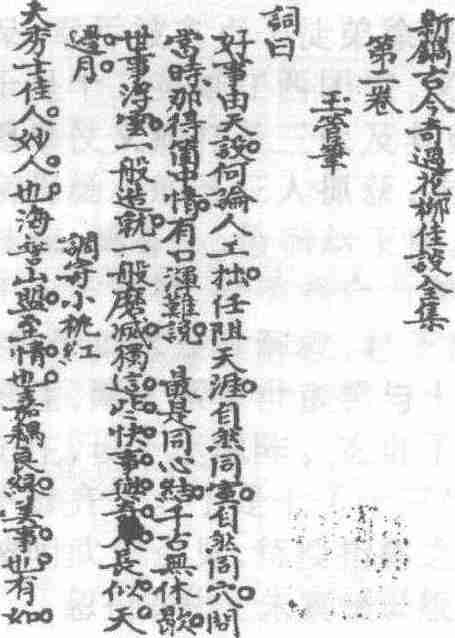 新鐫古今奇遇花柳佳談全集
第二卷
玉管筆
詞曰
好事由天設何論人工拙任阻天涯自然同室自然同穴閣
當時那得箇中情有口渾難説 最是同心結千古無休歇
世事浮雲一般造就一般磨滅獨這些快事與吾人長似天
邊月
調寄小桃紅
夫秀士佳人妙人也海誓山盟至情也嘉耦良緣美事也有如